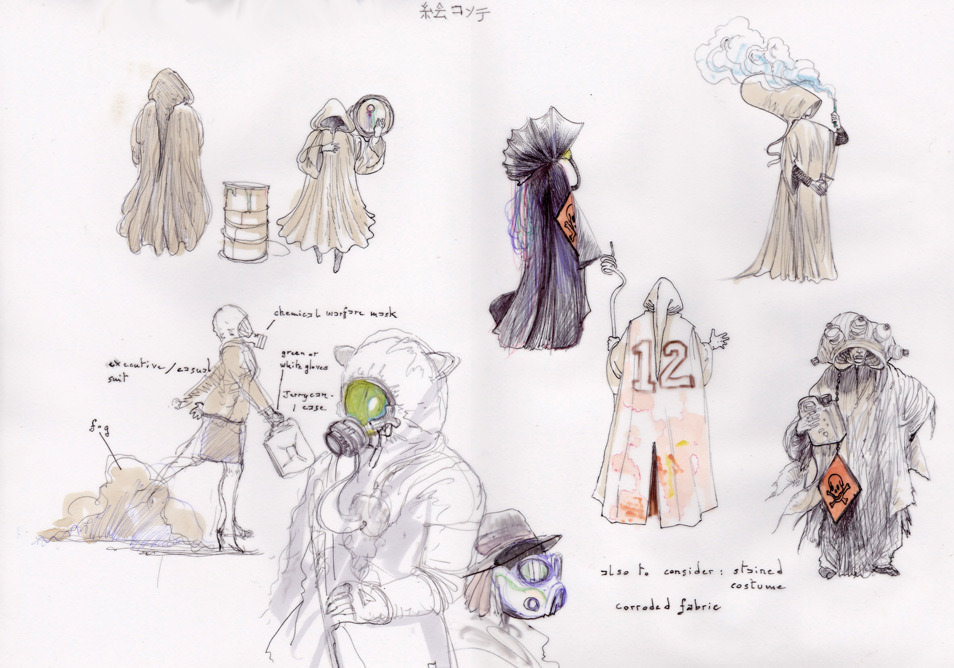 絵コンテ
chemical warfare mask
executive / casual
suit
green or
white gloves
Jerrycan
/ case
fog
12
also to consider : stained
costume
corroded fabric